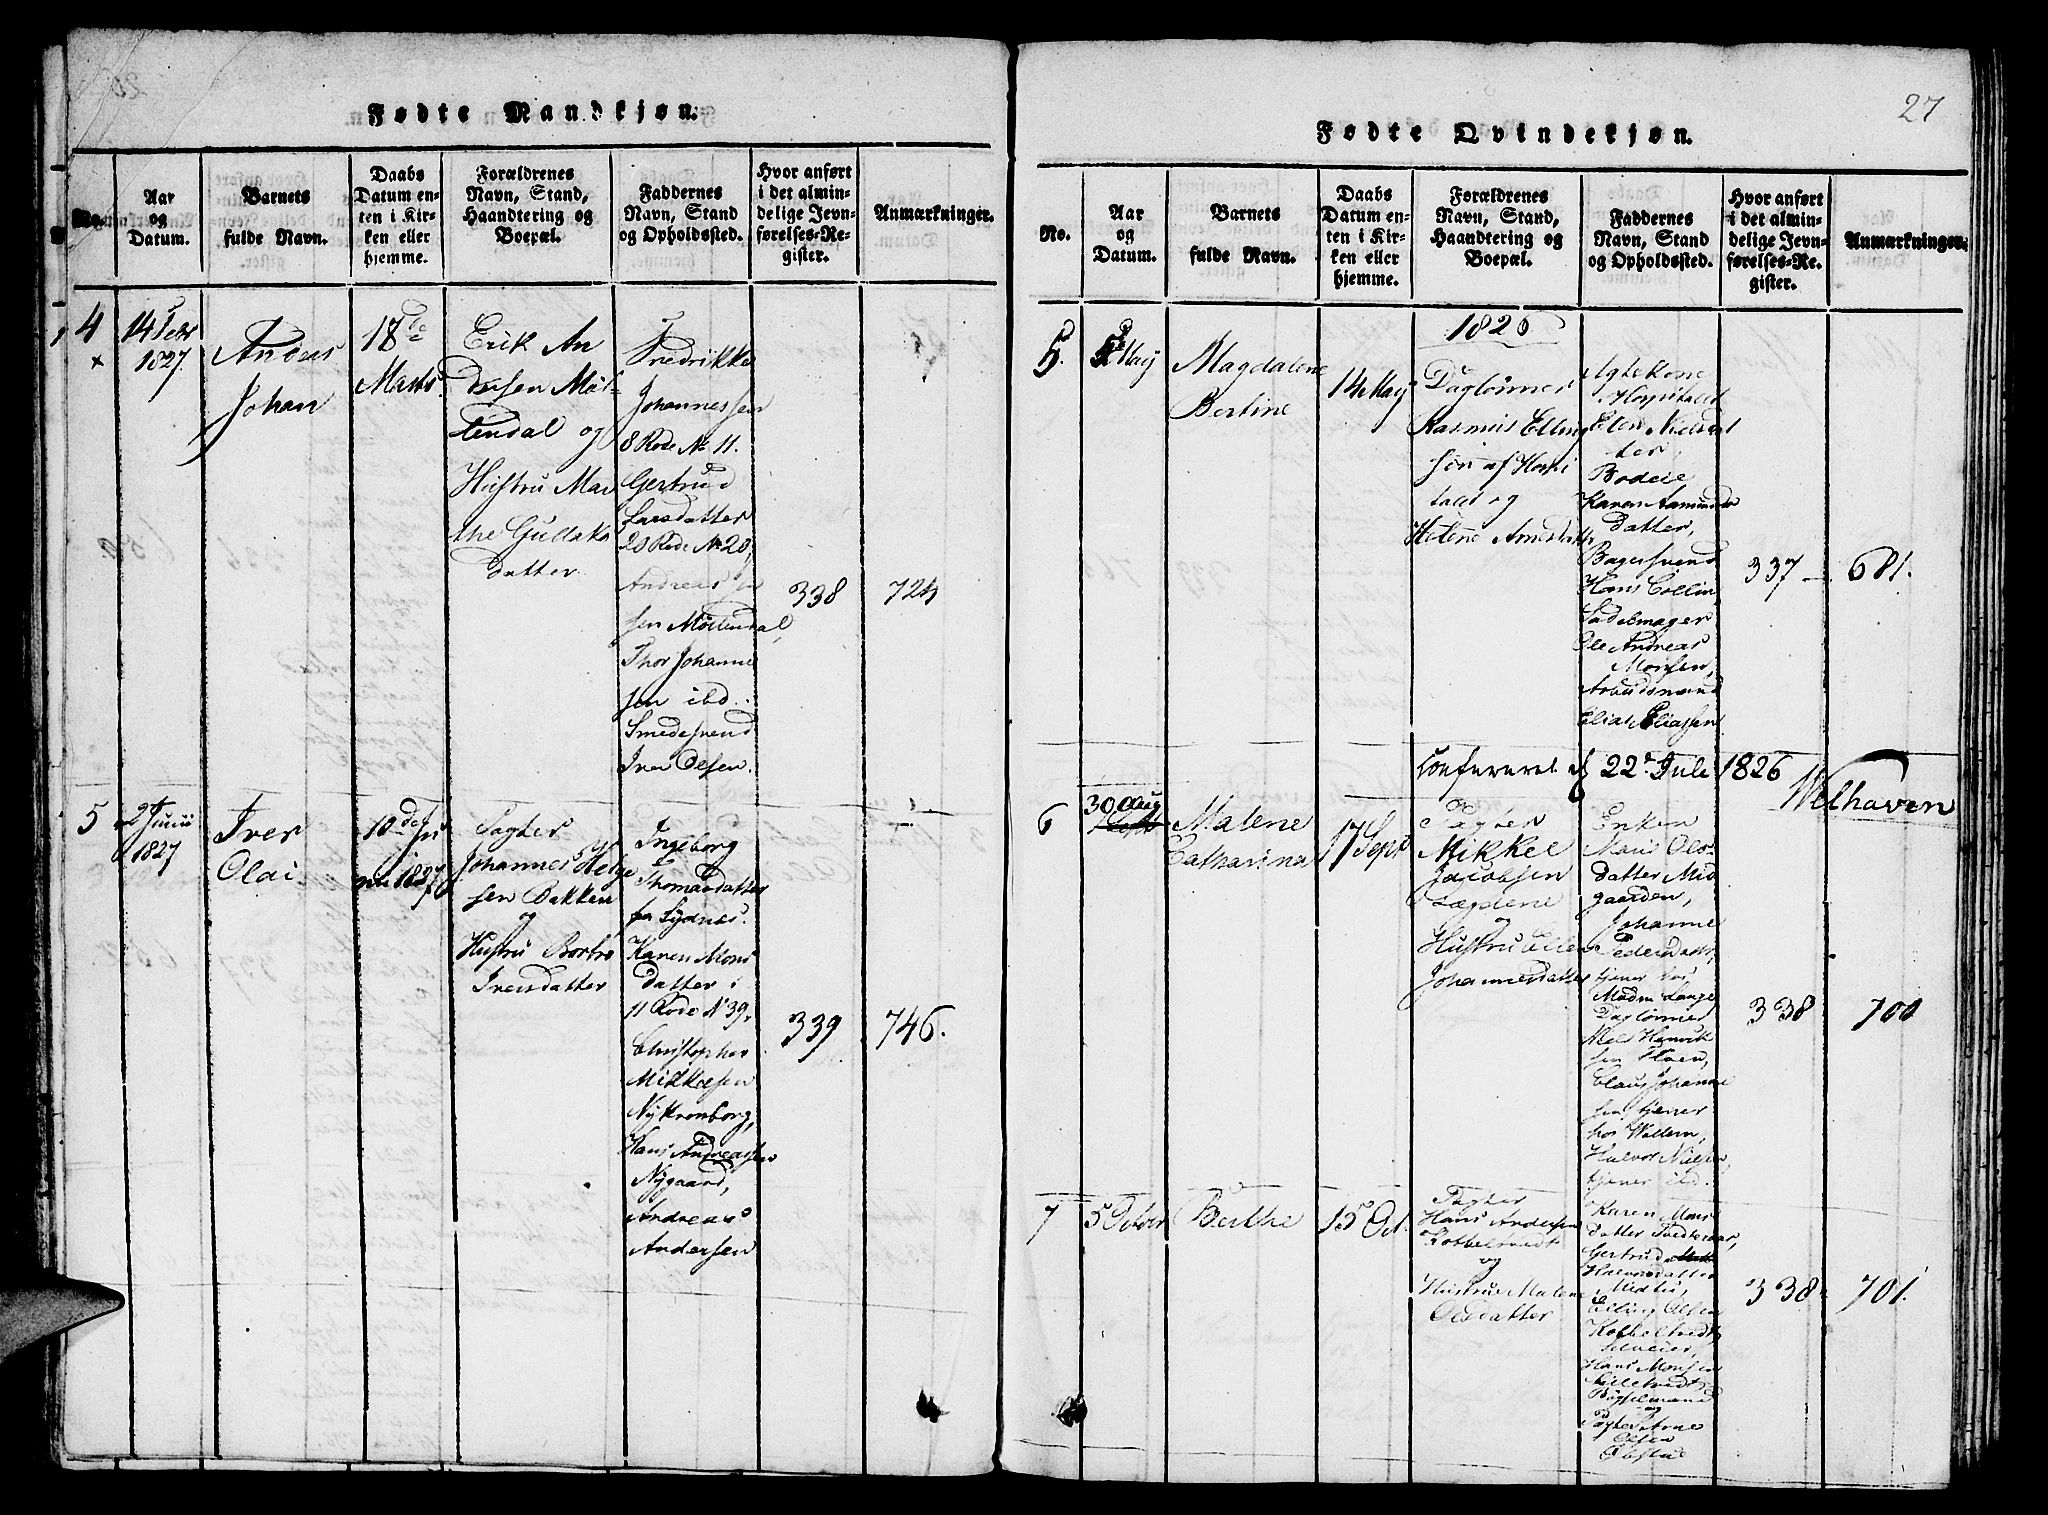 Fødte Mandkjøn.
No.
Aar
og
Datum.
Barnets
fulde Navn.
Daabs
Datum en-
ten i Kir-
ken eller
hjemme.
Forældrenes
Navn, Stand,
Haandtering og
Boepæl.
Faddernes
Navn, Stand
og Opholdssted.
Hvor anført
i det almin-
delige Jevn-
førelses-Re-
gister.
Anmærkninger.
4
14 Febr
1827
Johan
18de
Marts
Erik An
dersen Møl
lendal og
Hustru Mar
the Gullaks
datter
Fredrikke
Johannessen
8 Rode No 11.
Gertrud
Larsdatter
20 Rode No 20,
Andreas
sen Møllendal,
Thor Johanne
sen ibd.
Smedesvend
Iver Olsen.
338
724
5
2 Junii
1827
Iver
Olai
10de Ju
nii 1827
Johannes Helge
sen Bakken
og
Hustru Barbro
Iversdatter
Ingeborg
Thomasdatter
fra Sydnes.
Karen Mons
datter i
11 Rode No 39,
Christopher
Mikkelsen
Nykronborg,
Hans Andreassen
Nygaard,
Andreas
Andersen
339
746.
27
Fødte Qvindekjøn.
No.
Aar
og
Datum.
Barnets
fulde Navn.
Daabs
Datum en-
ten i Kir-
ken eller
hjemme.
Forældrenes
Navn, Stand,
Haandtering og
Boepæl.
Faddernes
Navn, Stand
og Opholdssted.
Hvor anført
i det almin-
delige Jevn-
førelses-Re-
gister.
Anmærkninger.
1826
5.
May
Magdalene
Bertine
14 May
Daglønner
Rasmus Elling
sen af Hospi
talet og
Helene Arnesdatter
Hospitalet
Elen Nielsdat
ter,
Bodeie
Karen Aamunds
datter,
Bagersvend
Hans Collin,
Sadelmager
Ole Andreas
Monsen,
Arbeidsmand
Elias Eliassen
337
681.
Confereret d. 22de Juli 1826
Welhaven
6
30 Aug
Malene
Catharina
17 Sept
Pagter
Mikkel
Jacobsen
Lægdene
og
Hustru Ellen
Johannesdatter
Enken
Maris Ols
datter Mid
gaarden,
Johanne
Pedersdatt,
tjener hos
Madm Lange
Daglønner
Mels Henrik
sen
Claus Johanne
sen, tjener
hos Wallem,
Halvor Nielsen,
tjener ibd.
338
700
7
5 October
Berthe
15 Oct.
Pagter
Hans Andersen
Kobbeltvedt
og
Hustrue Malene
Olsdatter
Karen Mons
datter
Gertrud
Halvorsdatter
Midtun,
Elling Olsen
Kobbeltvedt
Hans Monsen
Pagter Arne
Olsen
338
701.